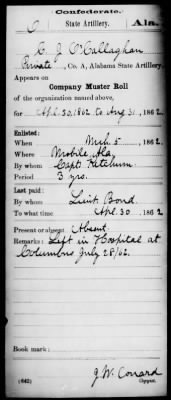 Confederate.
O State Artillery. Ala.
C. J. O'Callaghan
Private, Co. A, Alabama State Artillery.
Appears on
Company Muster Roll
of the organization named above,
for Apl. 30, 1862 to Aug 31, 1862.
Enlisted:
When Mch 5, 1862.
Where Mobile, Ala.
By whom Capt. Ketchum.
Period 3 yrs.
Last paid:
By whom Lieut. Bond.
To what time Apl. 30, 1862
Present or absent Absent.
Remarks: Left in Hospital at
Columbus July 28/62.
Book mark:
J. W. Conard
(642) Copyist.